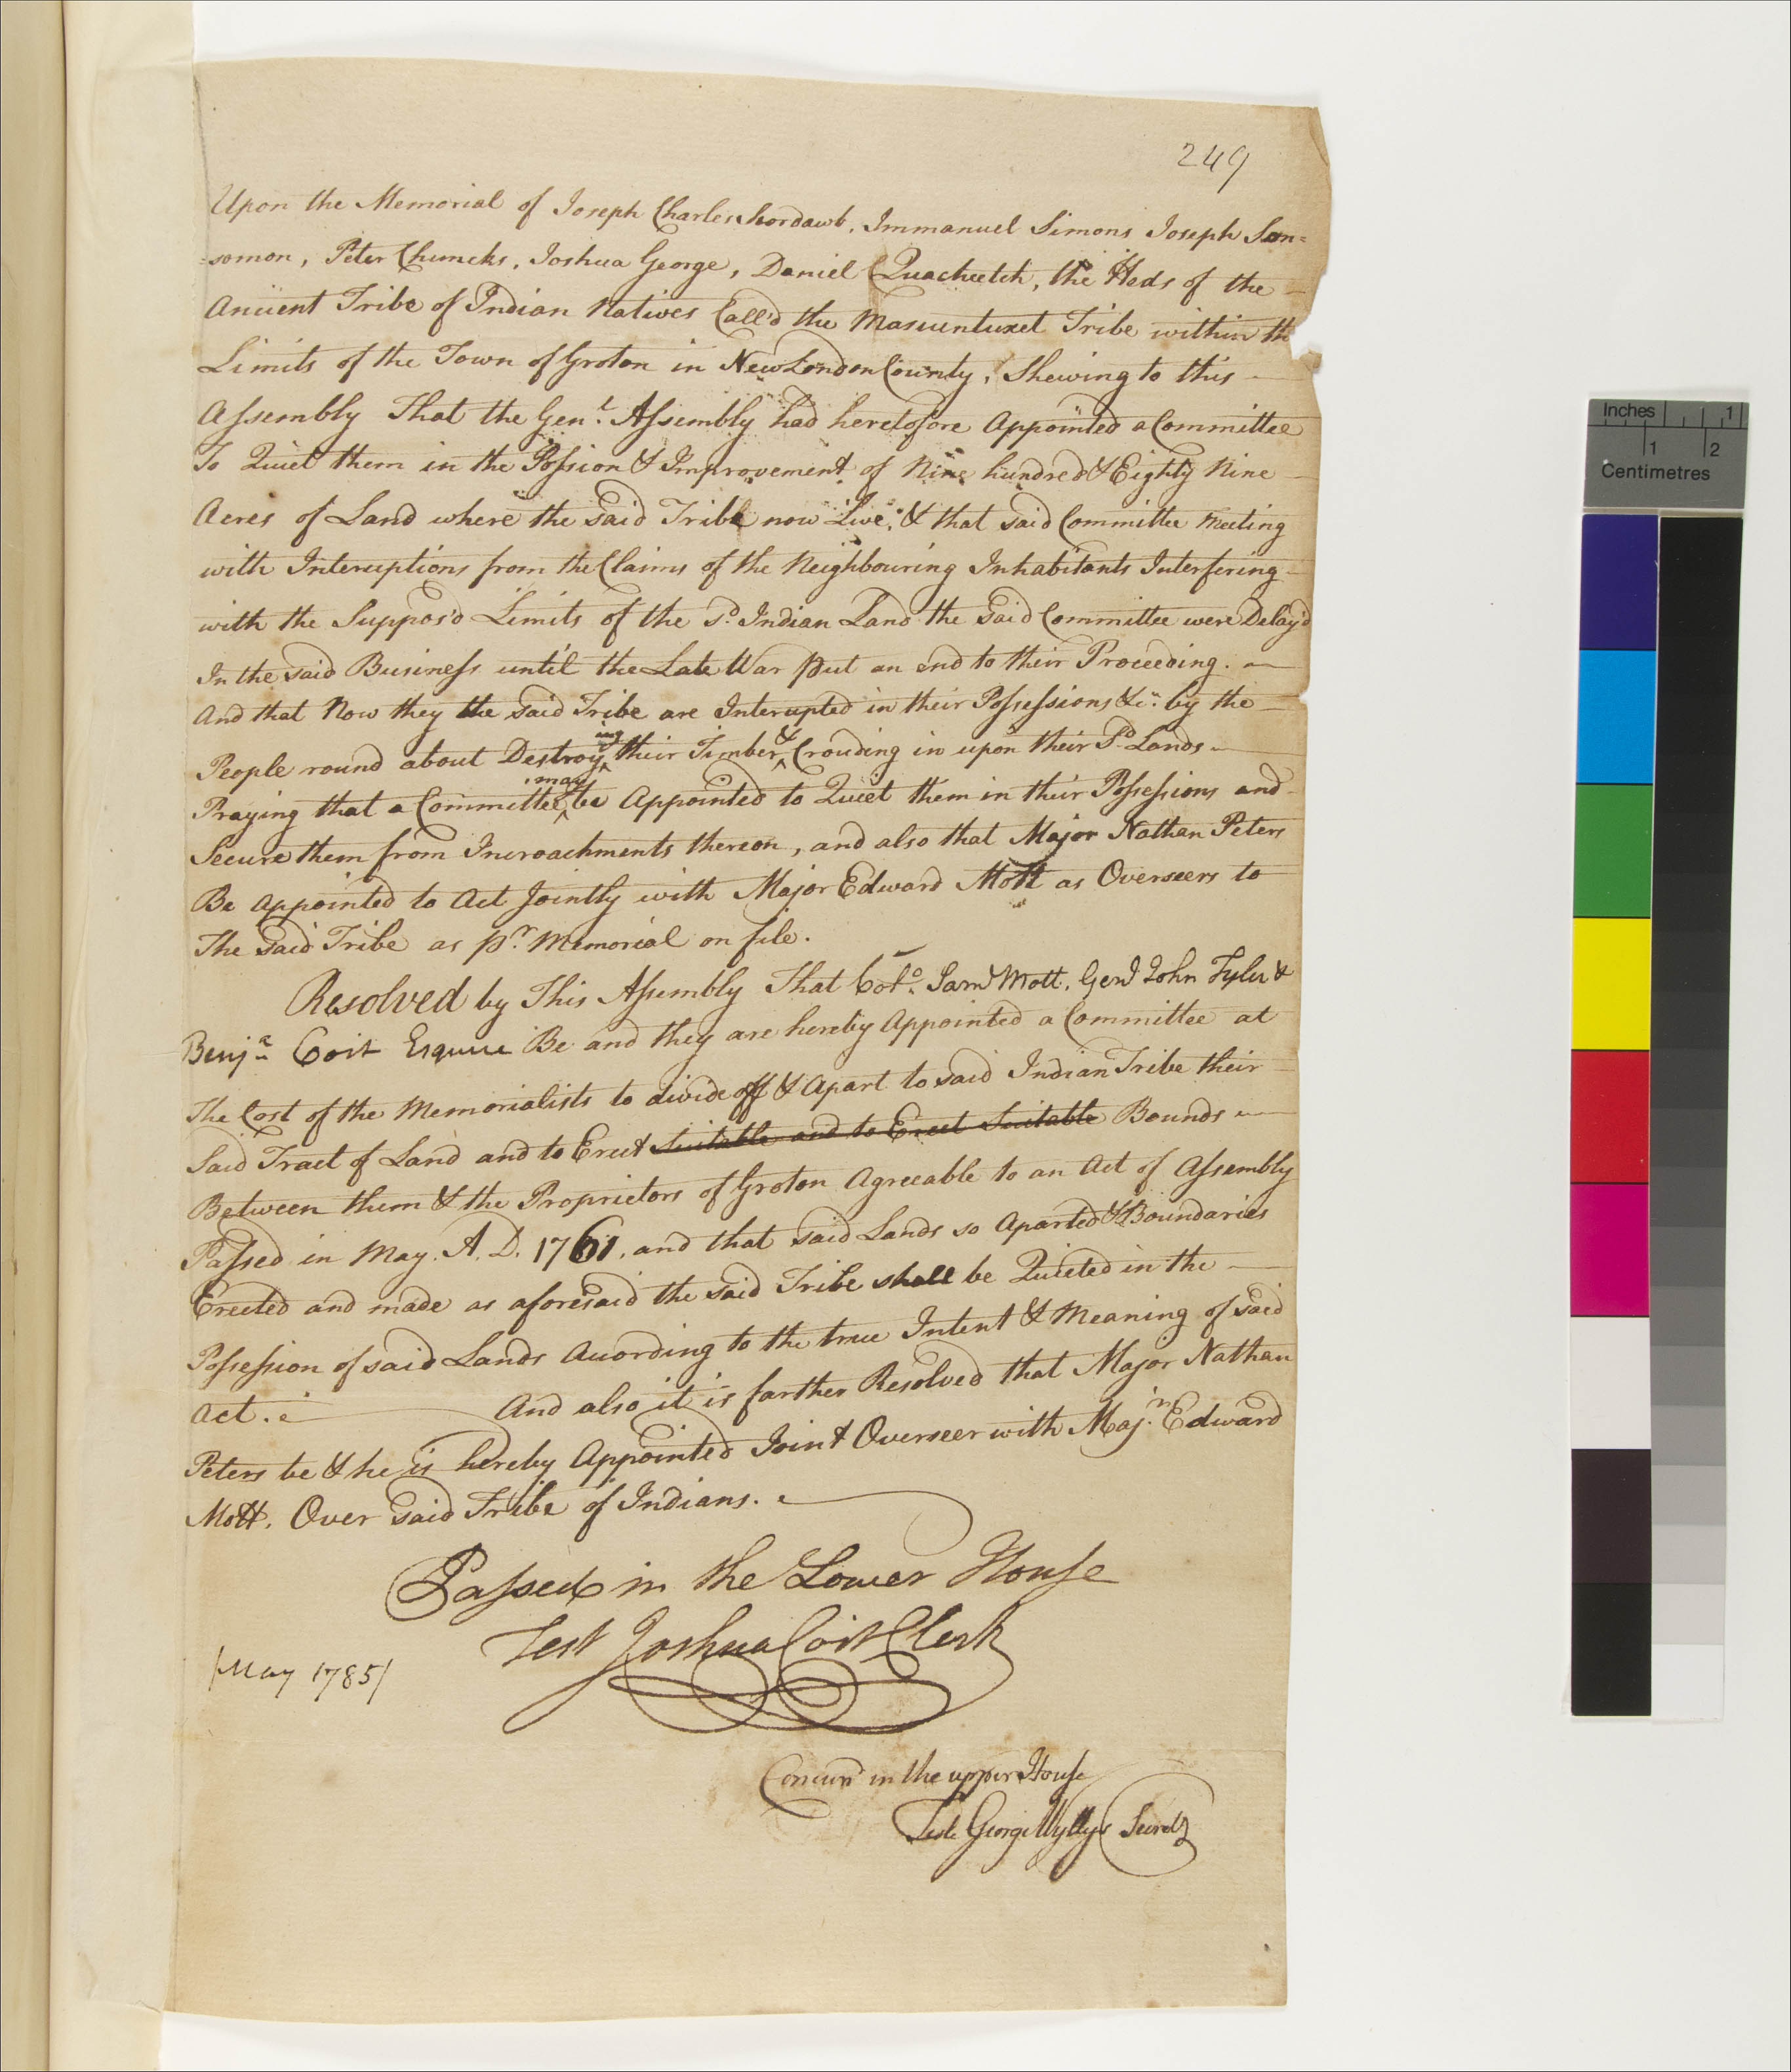 249
Upon the Memorial of Joseph Charles hordawb, Immanuel Simons Joseph San=
=somon, Peter Chuncks, Joshua George, Daniel Quacheetch, the Heds of the
Ancient Tribe of Indian Natives Call'd the Mascuntuxet Tribe within th
Limits of the Town of Groton in New London County, Shewing to this
Assembly That the Genl. Assembly had heretofore Appointed a Committee
To Quiet them in the Possion & Improvement of Nine hundred & Eighty Nine
Acres of Land where the said Tribe now Live, & that said Committee Meeting
with Interuptions from the Claims of the Neighbouring Inhabitants Interfering
with the Suppos'd Limits of the sd. Indian Land the said Committee were Delay'd
In the said Business until the Late War put an end to their Proceeding.
And that Now they the said Tribe are Interupted in their Possessions &c. by the
People round about Destroying their Timber & Crouding in upon their Sd. Lands
Praying that a Committee may be Appointed to Quiet them in their Possessions and
Secure them from Incroachments thereon, and also that Major Nathan Peters
Be Appointed to Act Jointly with Major Edward Mott as Overseers to
The said Tribe as pr. Memorial on file.
Resolved by This Assembly That Colo. Saml Mott, Genl John Tyler &
Benja. Coit Esquire Be and they are hereby Appointed a Committee at
The Cost of the Memorialists to divide off & Apart to said Indian Tribe their
Said Tract of Land and to Erect Suitable and to Erect Suitable Bounds
Between them & the Proprietors of Groton Agreeable to an Act of Assembly
Passed in May. A. D. 1761. and that said Lands so Aparted & Boundaries
Erected and made as aforesaid the said Tribe shall be Quieted in the
Possession of said Lands According to the true Intent & Meaning of said
Act. And also it is farther Resolved that Major Nathan
Peters be & he is hereby Appointed Joint Overseer with Majr. Edward
Mott. Over said Tribe of Indians.
Passed in the Lower House
Test Joshua Coit Clerk
/May 1785/
Concurd in the upper House
Test George Wyllys Secrety
Inches 1
1 2
Centimetres